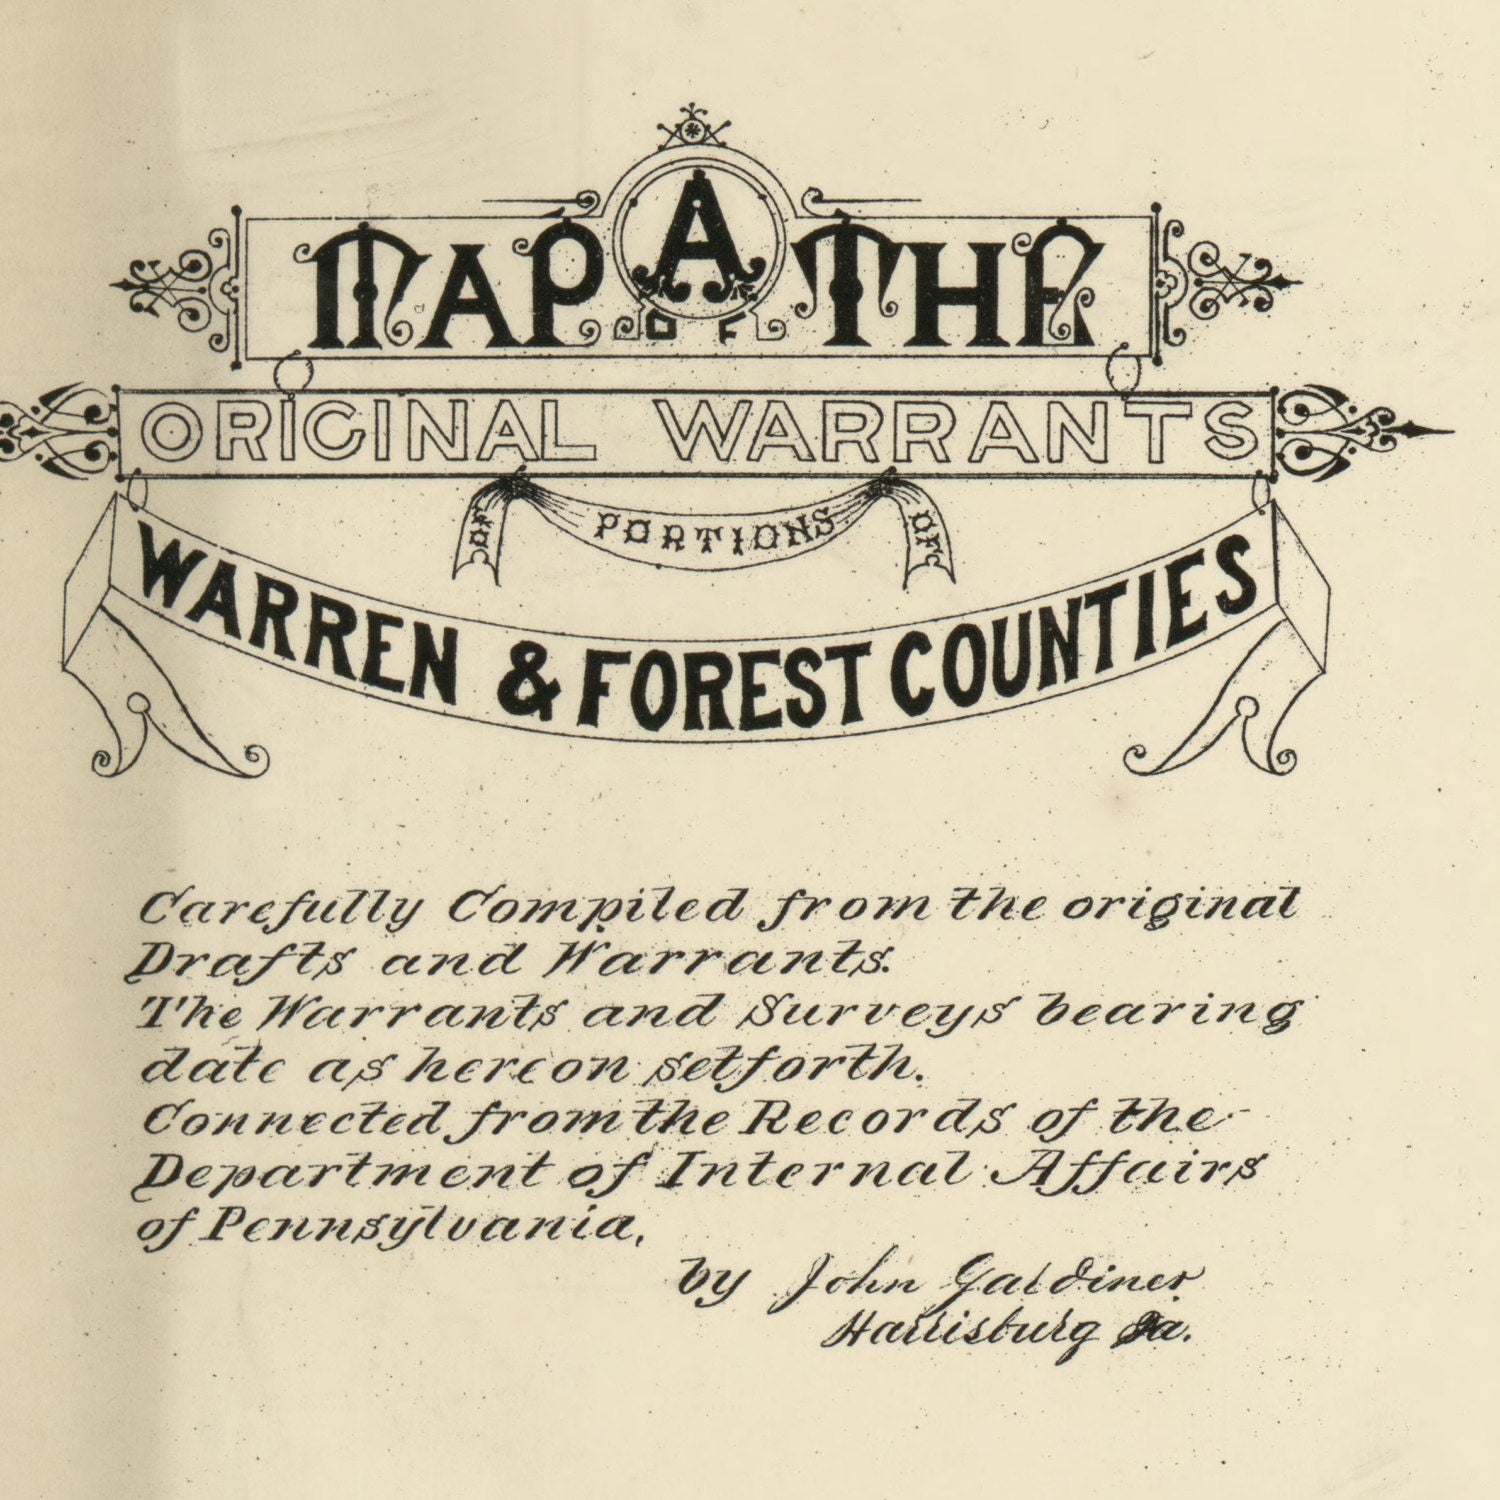 A
MAP OF THE
ORIGINAL WARRANTS
OF PORTIONS OF
WARREN & FOREST COUNTIES
Carefully Compiled from the original
Drafts and Warrants.
The Warrants and Surveys bearing
date as hereon setforth.
Connected from the Records of the
Department of Internal Affairs
of Pennsylvania,
by John Gardiner
Harrisburg Pa.